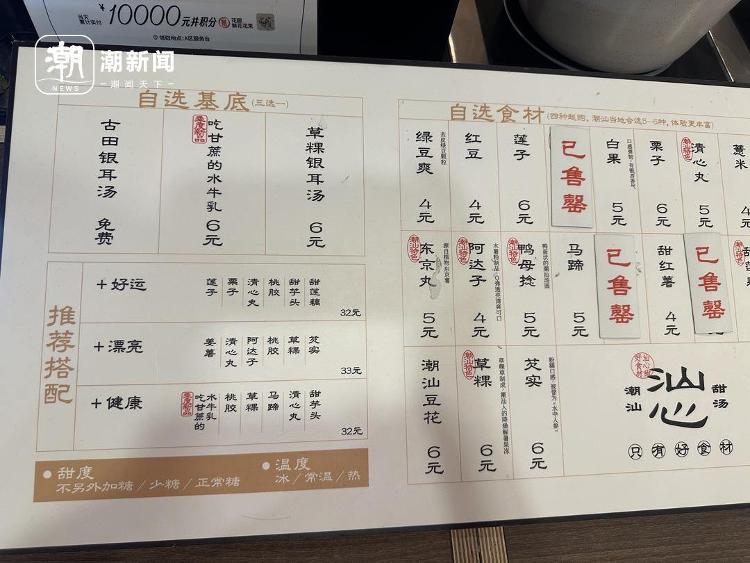 10000元并积分
领取地点：A区服务台
潮
NEWS
潮新闻
潮闻天下
自选基底（三选一）
古田银耳汤 免费
吃甘蔗的水牛乳 6元
草粿银耳汤 6元
推荐搭配
+好运
莲子
栗子
清心丸
桃胶
甜芋头
甜莲藕
32元
+漂亮
姜薯
清心丸
阿达子
桃胶
草粿
芡实
33元
+健康
吃甘蔗的水牛乳
桃胶
草粿
马蹄
清心丸
甜芋头
32元
甜度
不另外加糖／少糖／正常糖
温度
冰／常温／热
自选食材（四种起购，潮汕当地会选5-6种，体验更丰富）
绿豆爽 4元
红豆 4元
莲子 6元
已售罄
白果 5元
栗子 6元
潮汕特色
清心丸 5元
薏米
潮汕特色
东京丸 5元
潮汕特色
阿达子 4元
潮汕特色
鸭母捻 5元
马蹄 5元
已售罄
甜红薯 4元
已售罄
潮汕豆花 6元
潮汕特色
草粿 6元
芡实 6元
潮汕
汕心
甜汤
只有好食材